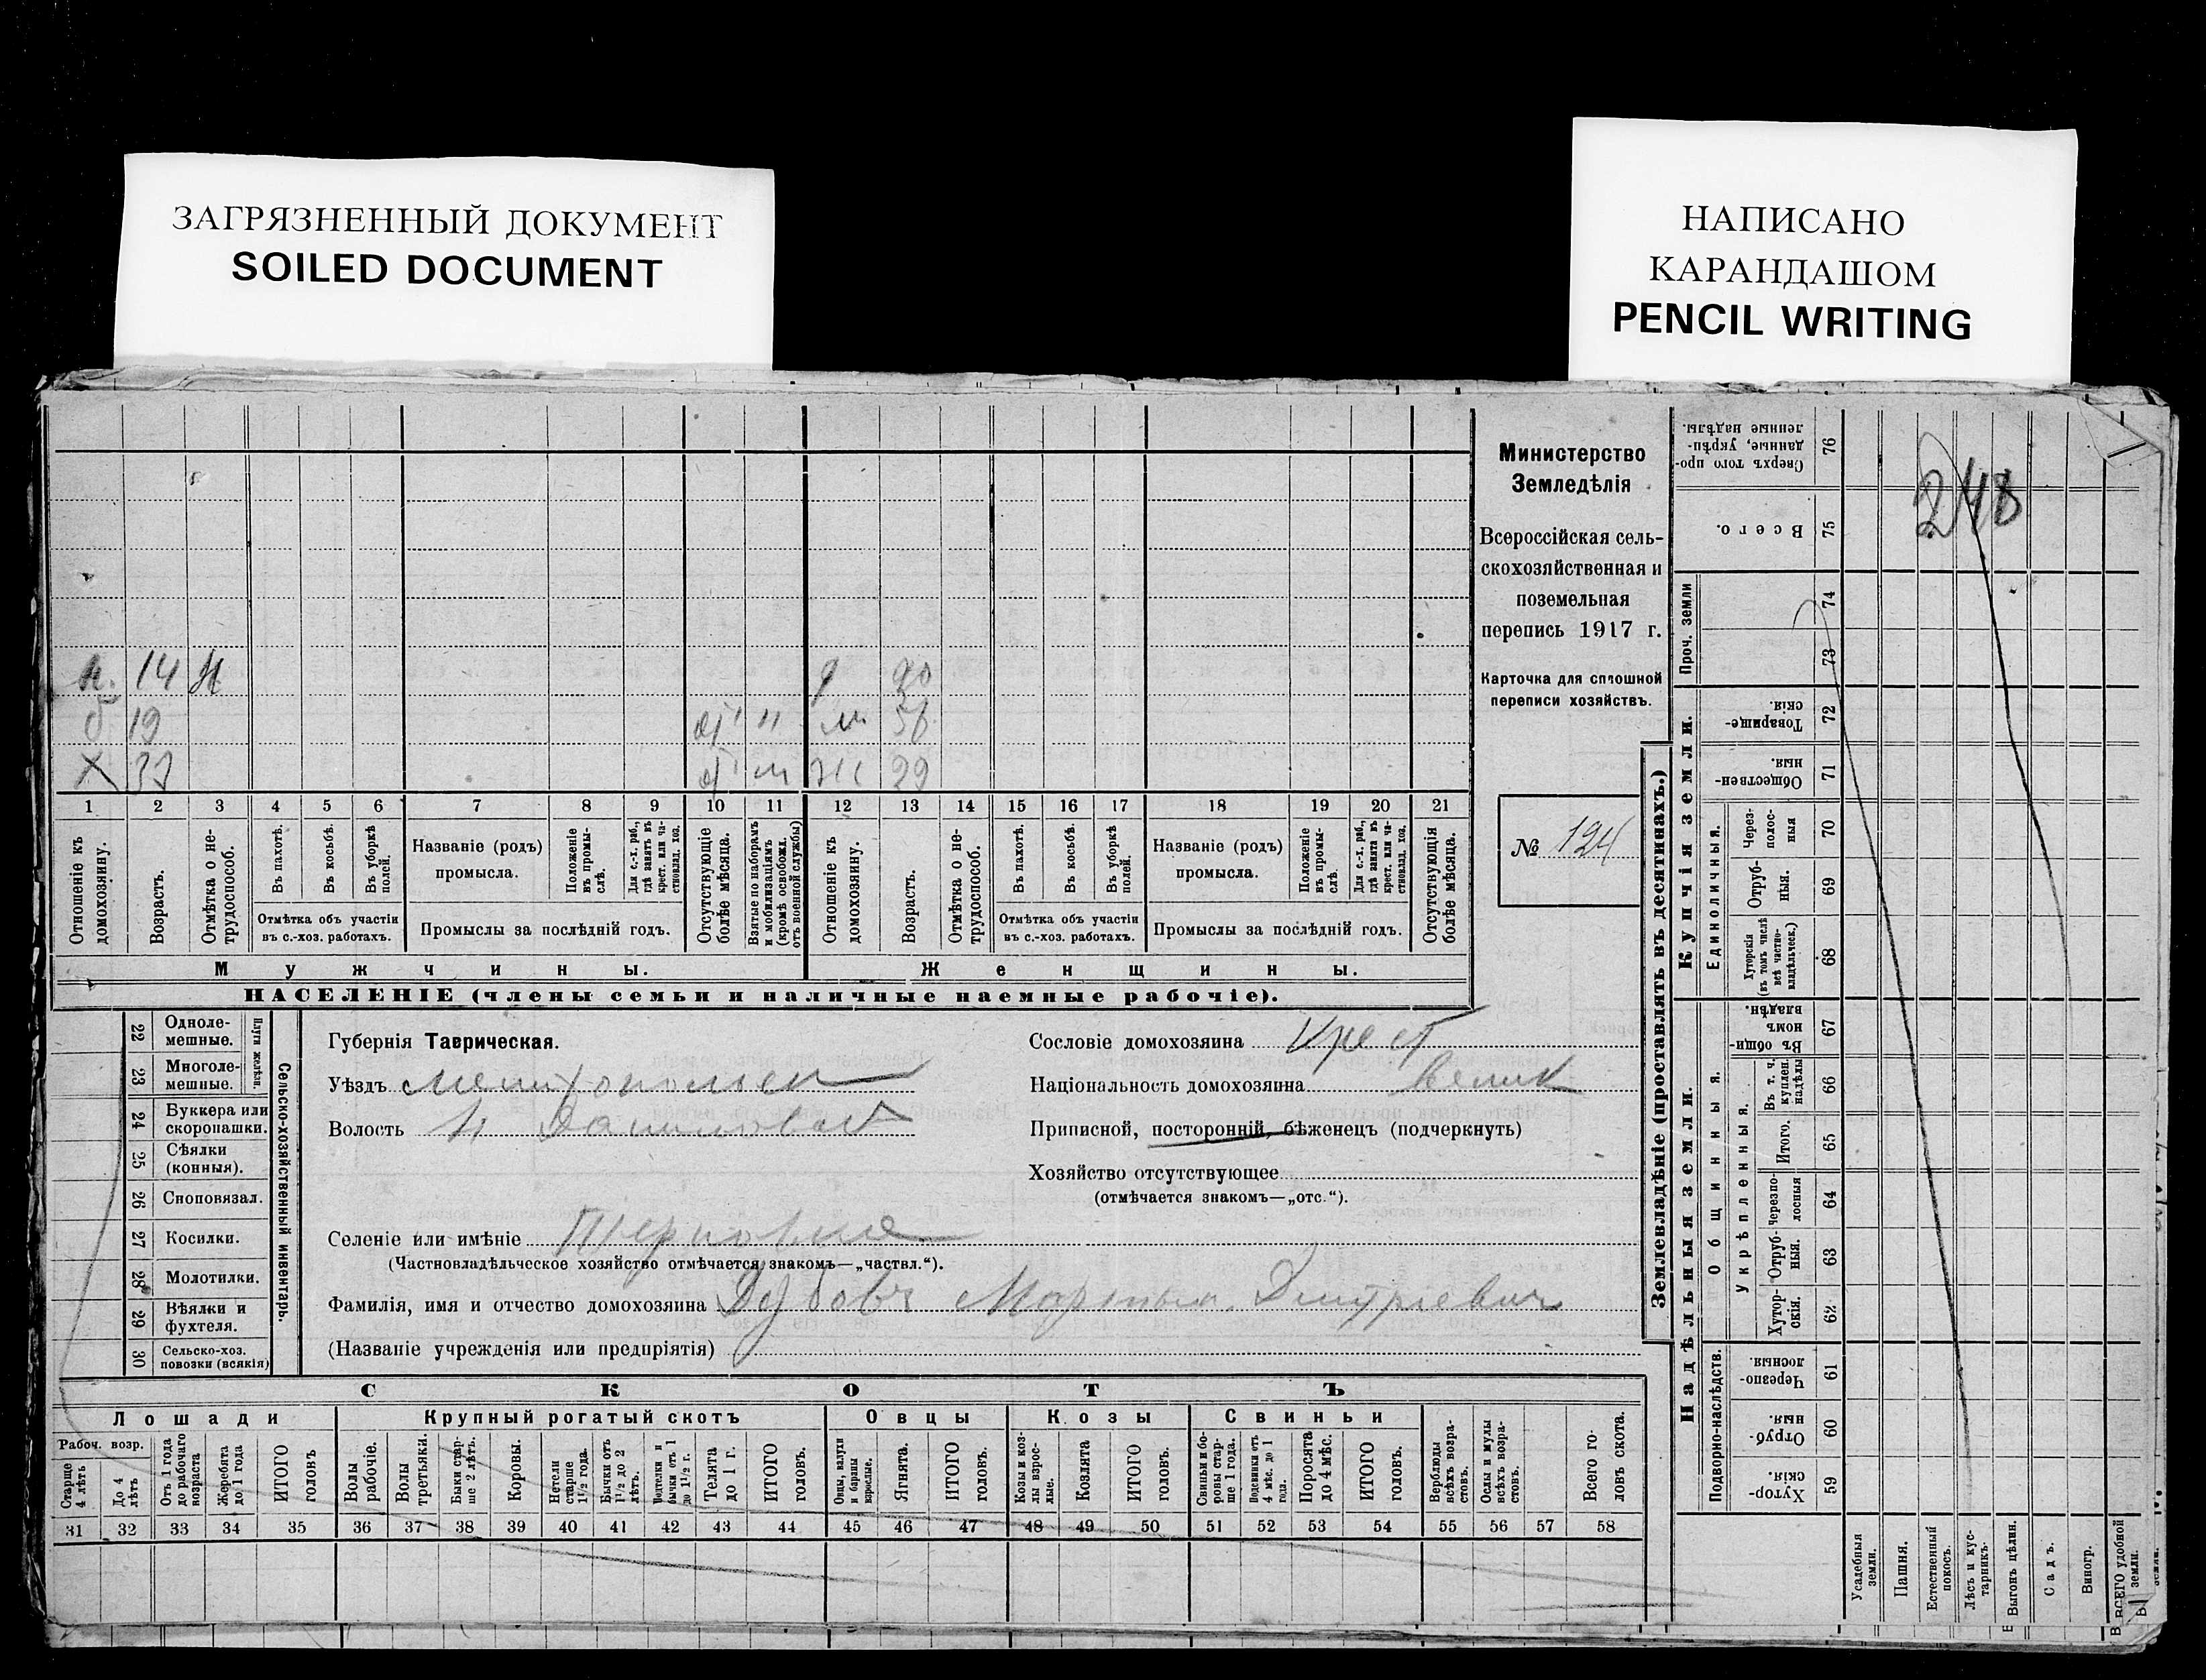 ЗАГРЯЗНЕННЫЙ ДОКУМЕНТ
SOILED DOCUMENT
НАПИСАНО
КАРАНДАШОМ
PENCIL WRITING
Министерство
Земледѣлія
Всероссійская сель-
скохозяйственная и
поземельная
перепись 1917 г.
Карточка для сплошной
переписи хозяйствъ.
№ 124
248
14 Н
19 м
Х 37 29
1 2 3 4 5 6 7 8 9 10 11 12 13 14 15 16 17 18 19 20 21
Отношеніе къ домохозяину.
Возрастъ.
Отмѣтка о не-трудоспособ.
Въ пахотѣ.
Въ косьбѣ.
Въ уборкѣ полей.
Отмѣтка объ участіи
въ с.-хоз. работахъ.
Названіе (родъ)
промысла.
Положеніе въ промы-слѣ.
Для с.-х. раб., гдѣ занятъ въ крест. или ча-стновлад. хоз.
Промыслы за послѣдній годъ.
Отсутствующіе болѣе мѣсяца.
Взятые по наборамъ и мобилизаціямъ (кромѣ освобожд. отъ военной службы)
Отношеніе къ домохозяину.
Возрастъ.
Отмѣтка о не-трудоспособ.
Въ пахотѣ.
Въ косьбѣ.
Въ уборкѣ полей.
Отмѣтка объ участіи
въ с.-хоз. работахъ.
Названіе (родъ)
промысла.
Положеніе въ промы-слѣ.
Для с.-х. раб., гдѣ занята въ крест. или ча-стновлад. хоз.
Промыслы за послѣдній годъ.
Отсутствующія болѣе мѣсяца.
Мужчины.
Женщины.
НАСЕЛЕНІЕ (члены семьи и наличные наемные рабочіе).
22 Однолемешные.
23 Многолемешные.
Плуги желѣзн.
24 Буккера или скоропашки.
25 Сѣялки (конныя).
26 Сноповязал.
27 Косилки.
28 Молотилки.
29 Вѣялки и фухтеля.
30 Сельско-хоз. повозки (всякія)
Сельско-хозяйственный инвентарь.
Губернія Таврическая.
Уѣздъ Мелитопольск
Волость
Селеніе или имѣніе
(Частновладѣльческое хозяйство отмѣчается знакомъ—„частвл.“).
Фамилія, имя и отчество домохозяина Дубовъ Мартын Дмитріевич
(Названіе учрежденія или предпріятія)
Сословіе домохозяина Крест
Національность домохозяина Велик
Приписной, посторонній, бѣженецъ (подчеркнуть)
Хозяйство отсутствующее
(отмѣчается знакомъ—„отс.“).
СКОТЪ
Лошади
Крупный рогатый скотъ
Овцы
Козы
Свиньи
Рабоч. возр.
Старше 4 лѣтъ
До 4 лѣтъ
Отъ 1 года до рабочаго возраста
Жеребята до 1 года
ИТОГО головъ
Волы рабочіе.
Волы третьяки.
Быки стар-ше 2 лѣтъ.
Коровы.
Нетели старше 1½ года.
Бычки отъ 1½ до 2 лѣтъ.
Подтелки и бычки отъ 1 до 1½ г.
Телята до 1 г.
ИТОГО головъ.
Овцы, валухи и бараны взрослые.
Ягнята.
ИТОГО головъ.
Козы и коз-лы взрос-лые.
Козлята
ИТОГО головъ.
Свиньи и бо-ровы стар-ше 1 года.
Подсвинки отъ 4 мѣс. до 1 года.
Поросята до 4 мѣс.
ИТОГО головъ.
Верблюды всѣхъ возра-стовъ.
Ослы и мулы всѣхъ возра-стовъ.
Всего го-ловъ скота.
31 32 33 34 35 36 37 38 39 40 41 42 43 44 45 46 47 48 49 50 51 52 53 54 55 56 57 58
Землевладѣніе (проставлять въ десятинахъ.)
Сверхъ того про-данные, укрѣп-ленные надѣлы. 76
Всего. 75
Проч. земли
74
73
Купчія земли.
Товарище-скія. 72
Обществен-ныя. 71
Единоличныя.
Через-полос-ныя 70
Отруб-ныя. 69
Хуторскія (въ томъ числѣ всѣ частно-владѣльческ.) 68
Надѣльныя земли.
Общинныя.
Въ общи-номъ владѣн. 67
Укрѣпленныя.
Въ т. ч. куплен. надѣлы 66
Итого. 65
Черезпо-лосныя 64
Отруб-ныя. 63
Хутор-скія. 62
Подворно-наслѣдств.
Черезпо-лосныя. 61
Отруб-ныя. 60
Хутор-скія. 59
Усадебныя земли.
Пашня.
Естественный покосъ.
Лѣсъ и кус-тарникъ.
Выгонъ цѣлин.
Садъ.
Виногр.
ВСЕГО удобной земли.